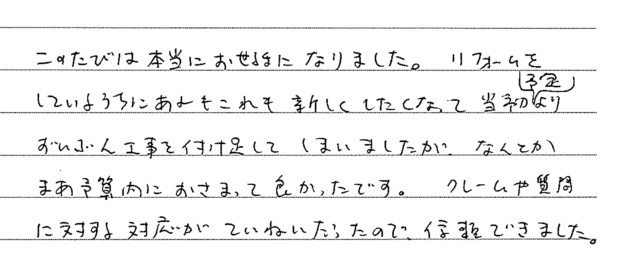 このたびは本当にお世話になりました。 リフォームを
しているうちにあれもこれも新しくしたくなって当初予定より
ずいぶん工事を付け足してしまいましたが、なんとか
まあ予算内におさまって良かったです。 クレームや質問
に対する対応がていねいだったので、信頼できました。